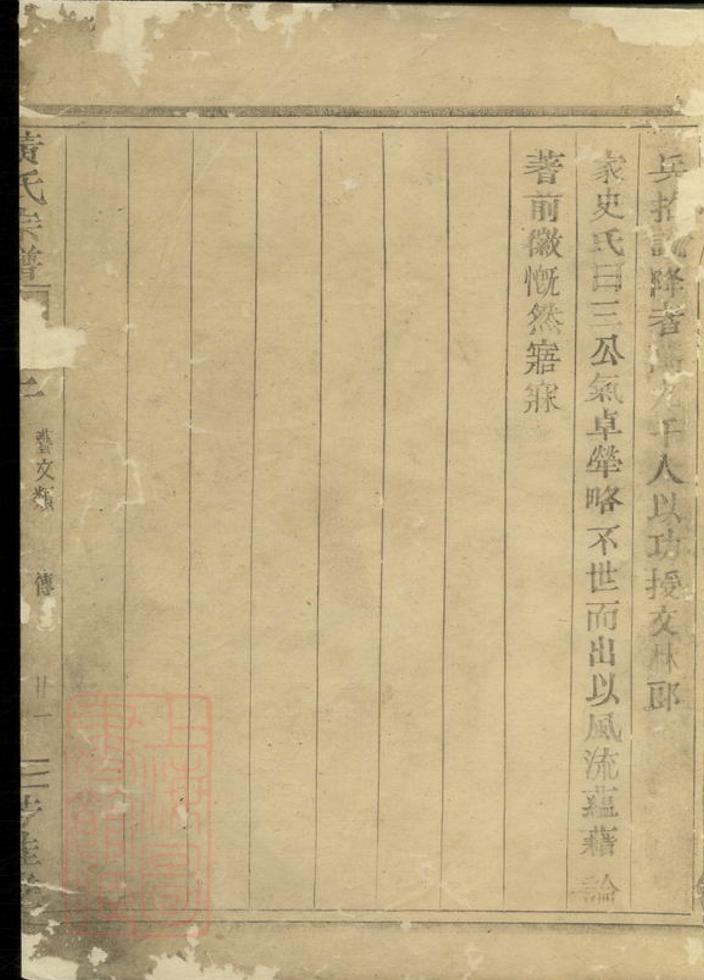 兵招 降者 千人以功授文林郎
家史氏曰三公氣卓犖略不世而出以風流蘊藉論
著前徽慨然寤寐
黃氏宗譜
藝文類
傳
廿一
上海圖書館藏